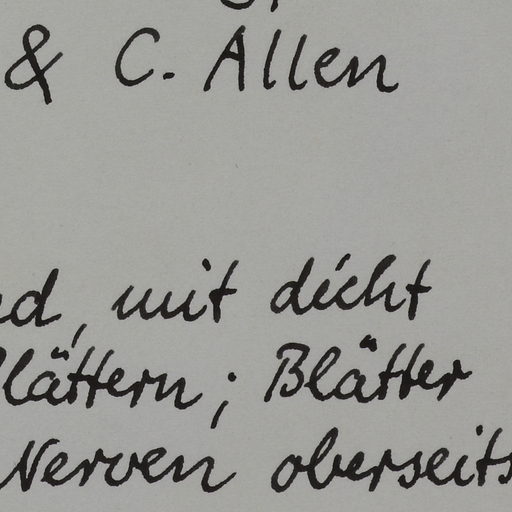 & C. Allen
mit dicht
Blättern; Blätter
Nerven oberseits